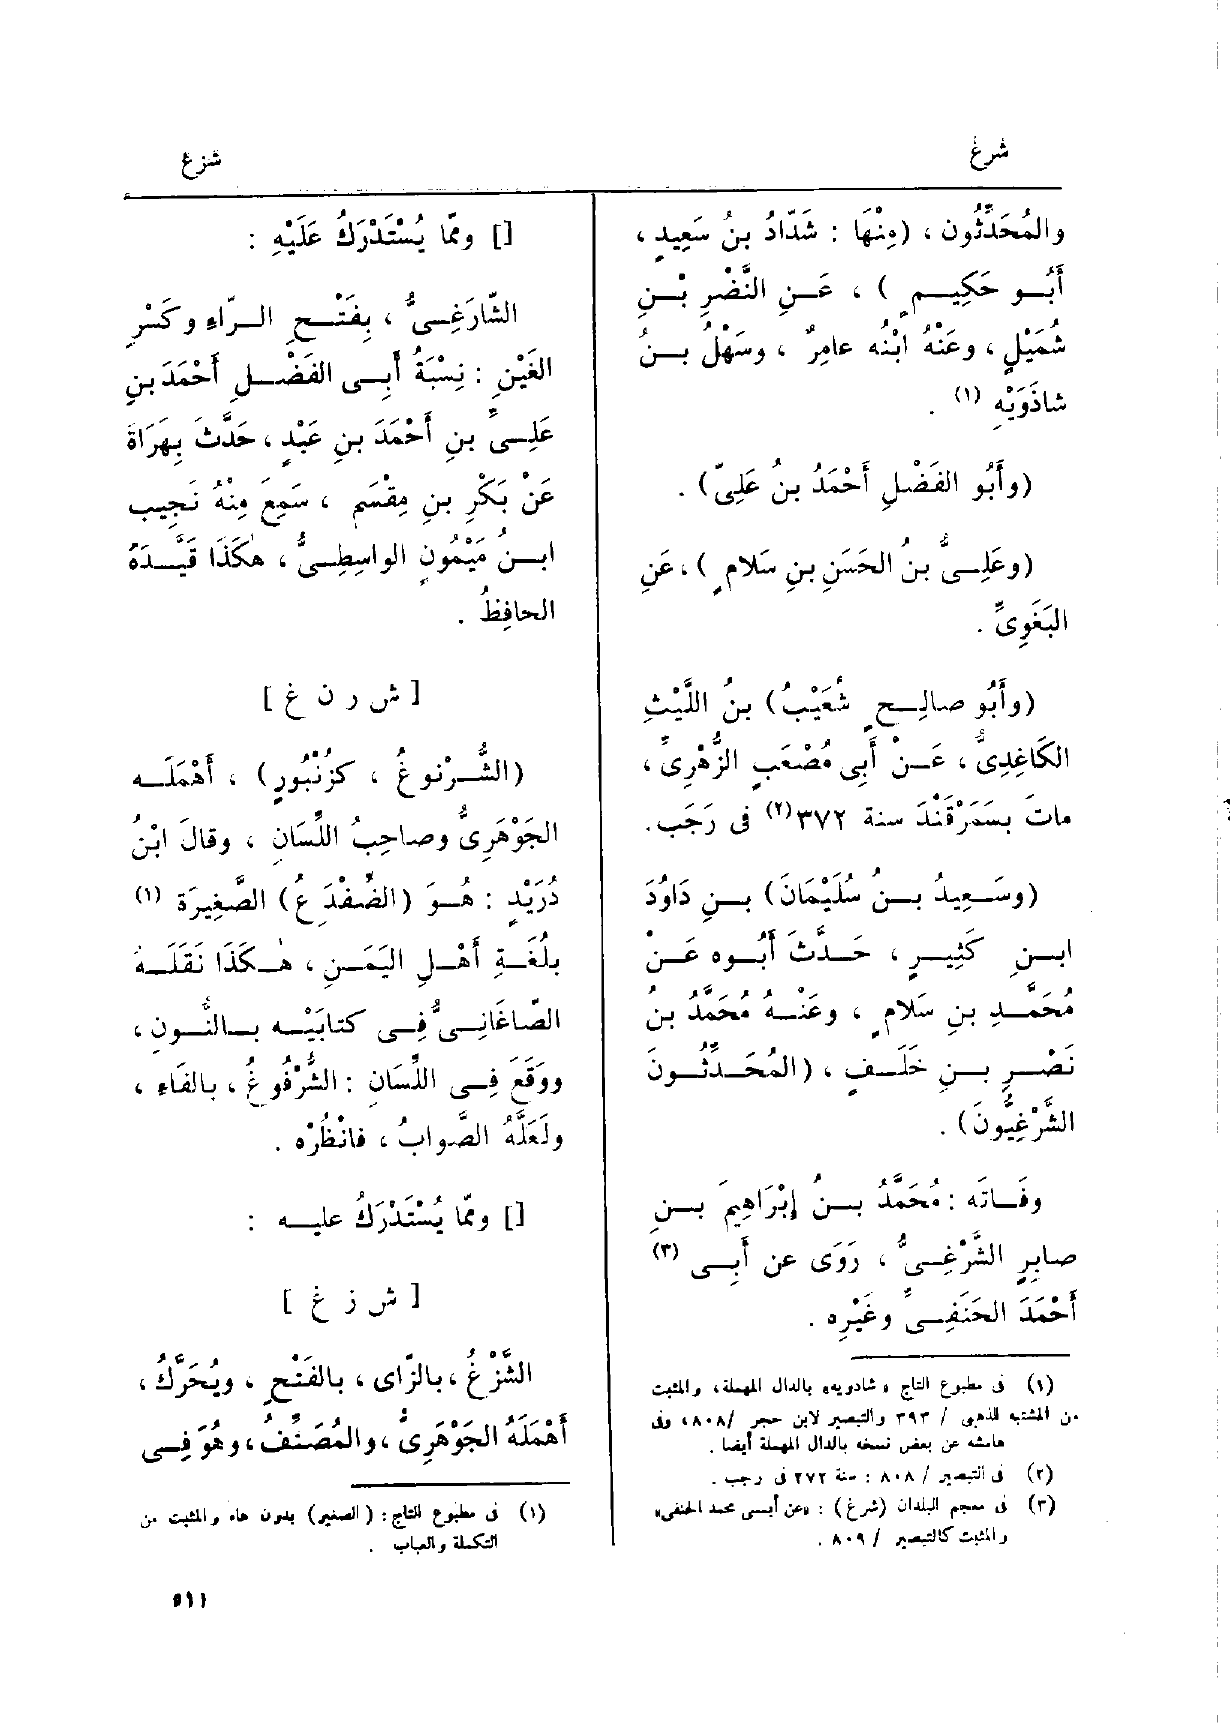 شرغ
شزغ
والمُحَدِّثُون ، (مِنْهَا : شَدّادُ بنُ سَعِيدٍ ،
أَبُو حَكِيمٍ ) ، عَنِ النَّضْرِ بْنِ
شُمَيْلٍ ، وعَنْهُ ابْنُه عامِرٌ ، وسَهْلُ بنُ
شاذَوَيْهِ (١) .
(وأَبُو الفَضْلِ أَحْمَدُ بنُ عَلِىّ) .
(وعَلِىُّ بنُ الحَسَنِ بنِ سَلامٍ ) ، عَنِ
البَغَوِىِّ .
(وأَبُو صالِحٍ شُعَيْبُ) بنُ اللَّيْثِ
الكَاغِدِىُّ ، عَنْ أَبِى مُصْعَبٍ الزُّهْرِىِّ ،
ماتَ بسَمَرْقَنْدَ سنة ٣٧٢(٢) فى رَجَب.
(وسَعِيدُ بنُ سُلَيْمَانَ) بنِ دَاوُدَ
ابنِ كَثِيرٍ ، حَدَّثَ أَبُوه عَنْ
مُحَمَّدِ بنِ سَلامٍ ، وعَنْهُ مُحَمَّدُ بنُ
نَصْرِ بنِ خَلَفٍ ، (المُحَدِّثُونَ
الشَّرْغِيُّونَ) .
وفَاتَه : مُحَمَّدُ بنُ إبْرَاهِيمَ بنِ
صابِرٍ الشَّرْغِىُّ ، رَوَى عن أَبِى (٣)
أَحْمَدَ الحَنَفِىِّ وغَيْرِه .
(١) فى مطبوع التاج «شادويه» بالدال المهملة، والمثبت
من المشتبه للذهبى / ٣٩٣ والتبصير لابن حجر /٨٠٨، وفى
هامشه عن بعض نسخه بالدال المهملة أيضا .
(٢) فى التبصير / ٨٠٨ : سنة ٢٧٢ فى رجب .
(٣) فى معجم البلدان (شرغ) : «عن أبى محمد الحنفى»
والمثبت كالتبصير / ٨٠٩ .
[] وممّا يُسْتَدْرَكُ عَلَيْهِ :
الشّارَغِىُّ ، بِفَتْحِ الرّاءِ وكَسْرِ
الغَيْنِ : نِسْبَةُ أَبِى الفَضْلِ أَحْمَدَ بنِ
عَلِىِّ بنِ أَحْمَدَ بنِ عَبْدٍ ، حَدَّثَ بِهَرَاةَ
عَنْ بَكْرِ بنِ مِقْسَمٍ ، سَمِعَ مِنْهُ نَجِيبُ
ابنُ مَيْمُونٍ الواسِطِىُّ ، هٰكَذَا قَيَّدَهُ
الحافِظُ .
[ ش ر ن غ ]
(الشُّرْنوغُ ، كزُنْبُورٍ) ، أَهْمَلَه
الجَوْهَرِىُّ وصاحِبُ اللِّسَانِ ، وقالَ ابْنُ
دُرَيْدٍ : هُوَ (الضِّفْدَعُ) الصَّغِيرَة (١)
بلُغَةِ أَهْلِ اليَمَنِ ، هٰكَذَا نَقَلَهُ
الصّاغَانِىُّ فِى كتابَيْه بالنُّونِ ،
ووَقَعَ فِى اللِّسَانِ : الشُّرْفُوغُ ، بالفَاءِ ،
ولَعَلَّهُ الصَّوابُ ، فانْظُرْه .
[] وممّا يُسْتَدْرَكُ عليه :
[ ش ز غ ]
الشَّزْغُ ،بالزّاى ، بالفَتْحِ ، ويُحَرَّكُ ،
أَهْمَلَهُ الجَوْهَرِىُّ ،والمُصَنِّفُ، وهُوَ فِى
(١) فى مطبوع التاج: (الصغير) بدون هاء والمثبت من
التكملة والعباب .
٥١١